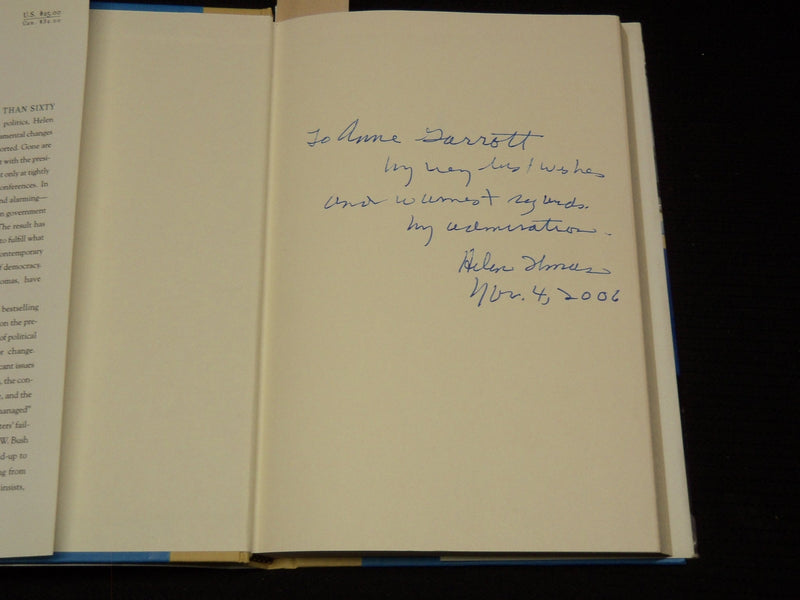 U.S. $25.00
Can. $32.00
THAN SIXTY
politics, Helen
amental changes
orted. Gone are
with the presi-
t only at tightly
onferences. In
nd alarming—
n government
The result has
to fulfill what
ontemporary
f democracy.
omas, have
bestselling
on the pre-
of political
r change.
cant issues
, the con-
, and the
managed"
ters' fail-
W. Bush
d-up to
ng from
insists,
To Anne Garrott
my very best wishes
and warmest regards.
my admiration.
Helen Thomas
Nov. 4, 2006